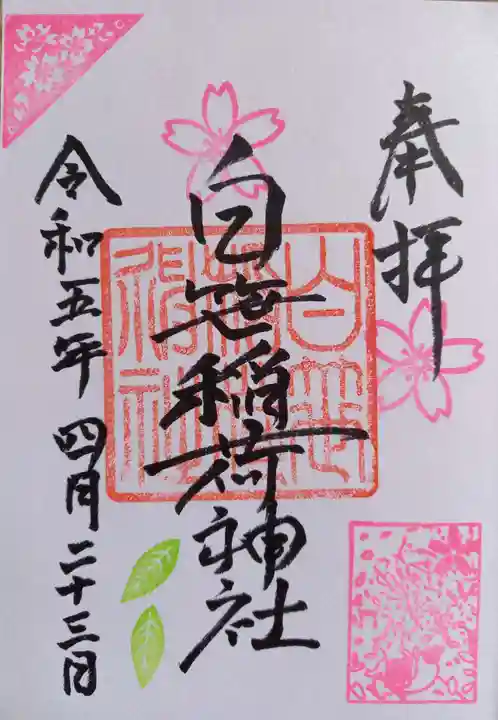 奉拝
白笹稲荷神社
令和五年 四月二十三日
白笹稲荷神社